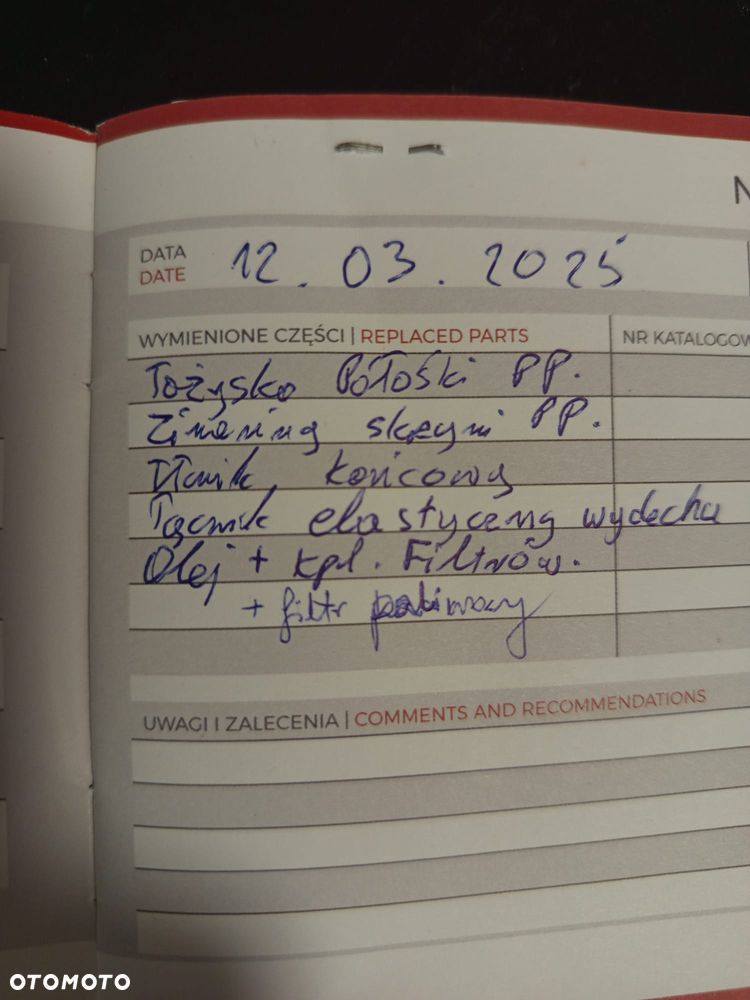 N
DATA
DATE
12.03.2025
WYMIENIONE CZĘŚCI | REPLACED PARTS
NR KATALOGOW
Łożysko Półośki PP.
Zimering skrzyni PP.
Tłumik końcowy
Łącznik elastyczny wydechu
Olej + kpl. Filtrów.
+ filtr paliwowy
UWAGI I ZALECENIA | COMMENTS AND RECOMMENDATIONS
OTOMOTO